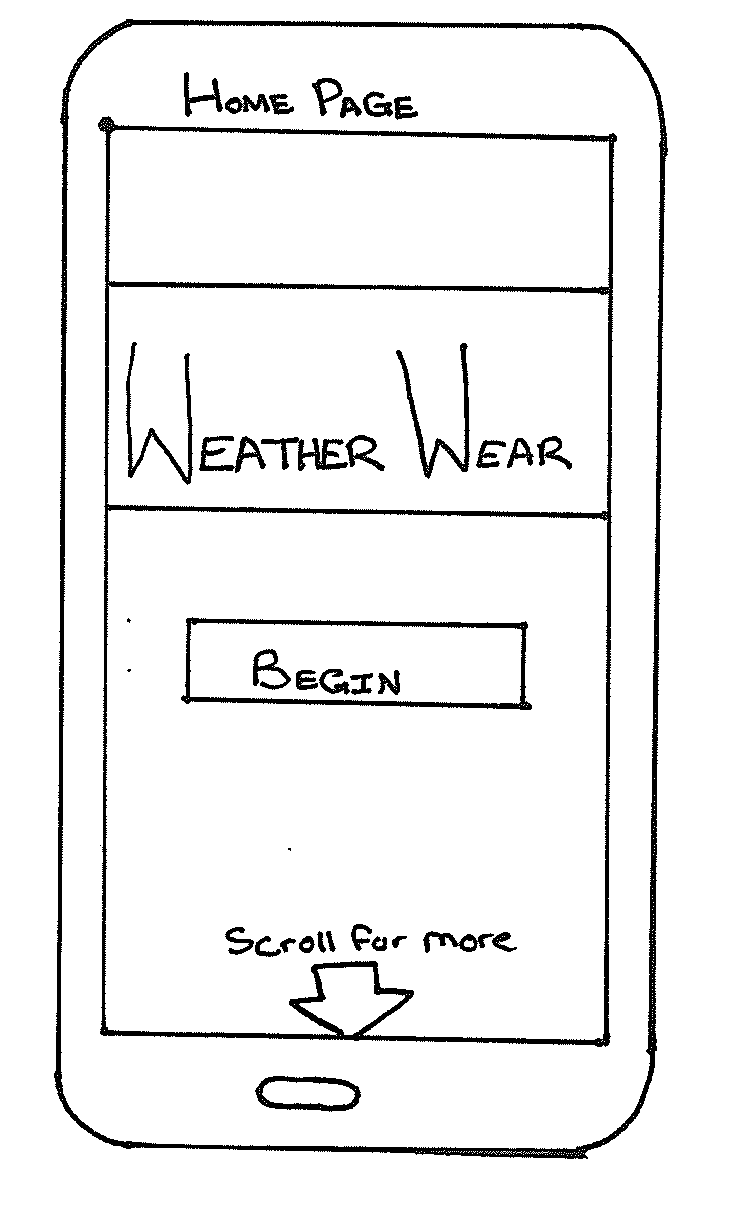 HOME PAGE
WEATHER WEAR
BEGIN
Scroll for more